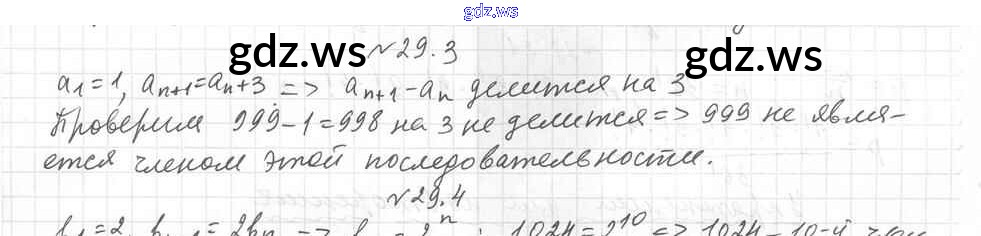 gdz.ws
gdz.ws gdz.ws
№29.3
a₁=1, aₙ₊₁=aₙ+3 => aₙ₊₁-aₙ делится на 3
Проверим 999-1=998 на 3 не делится => 999 не явля-
ется членом этой последовательности.
№29.4